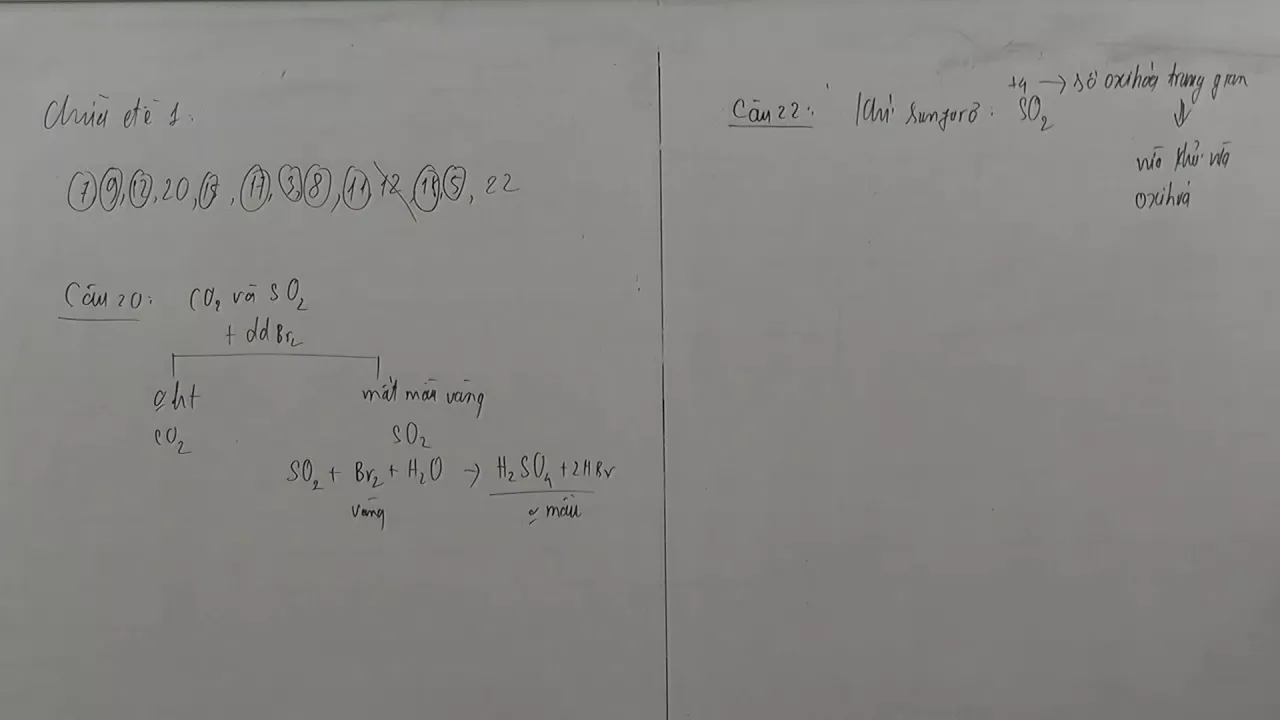 Chữa đề 1:
7, 9, 12, 20, 13, 17, 3, 8, 11, 12, 14, 5, 22
Câu 20: CO2 và SO2
+ dd Br2
ko ht
mất màu vàng
CO2
SO2
SO2 + Br2 + H2O → H2SO4 + 2HBr
vàng
ko màu
Câu 22: Khí sunfurơ: SO2
+4 → số oxi hóa trung gian
⇓
vừa khử vừa
oxi hoá